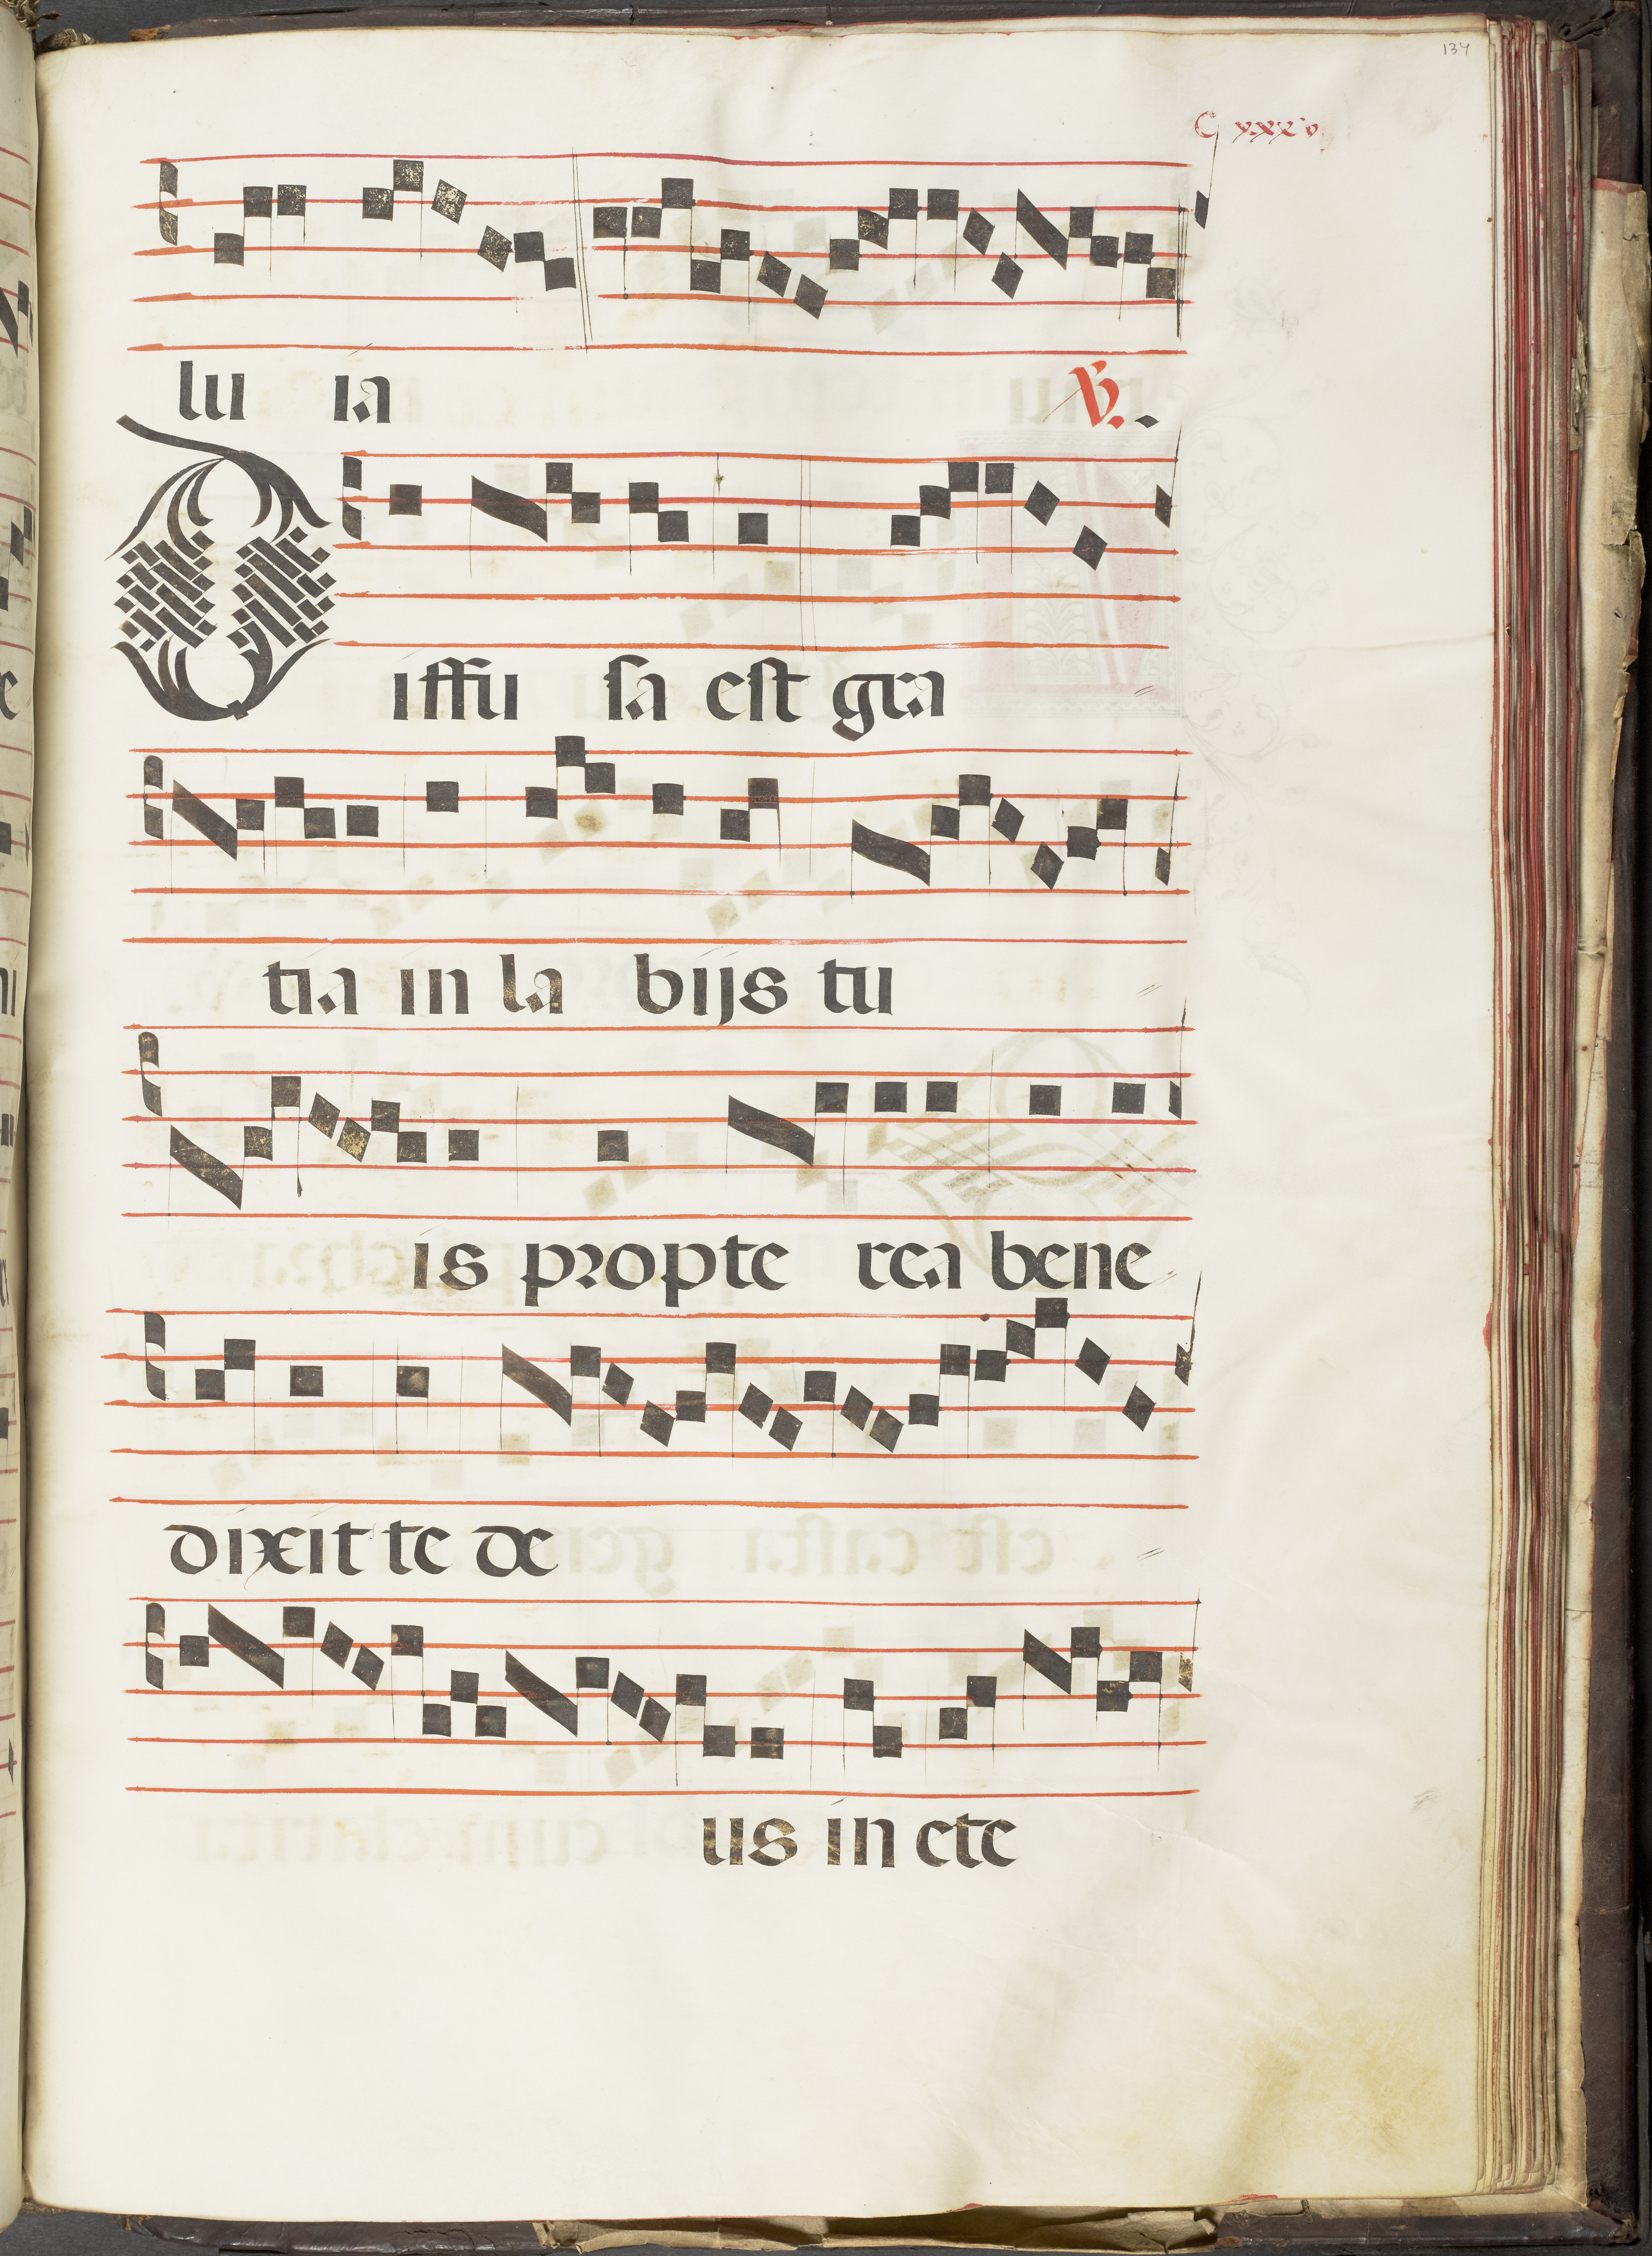 134
C xxxv
lu ia ℣.
Diffu sa est gra
tia in la bijs tu
is propte rea bene
dixit te de
us in ete